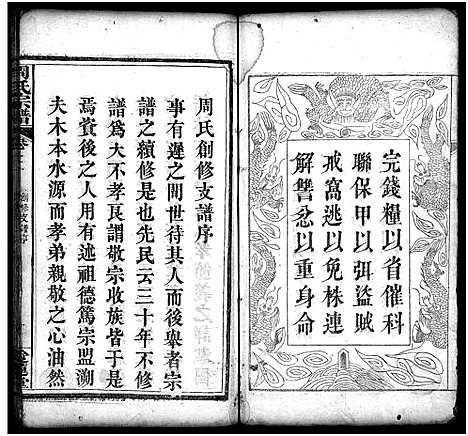 完錢糧以省催科
聯保甲以弭盜賊
戒窩逃以免株連
解讐忿以重身命
周氏創修支譜序
事有遲之閒世待其人而後舉者宗
譜之續修是也先民云三十年不修
譜爲大不孝良謂敬宗收族皆于是
焉賞後之人用有述祖德篤宗盟溯
夫木本水源而孝弟親敬之心油然
周氏宗譜